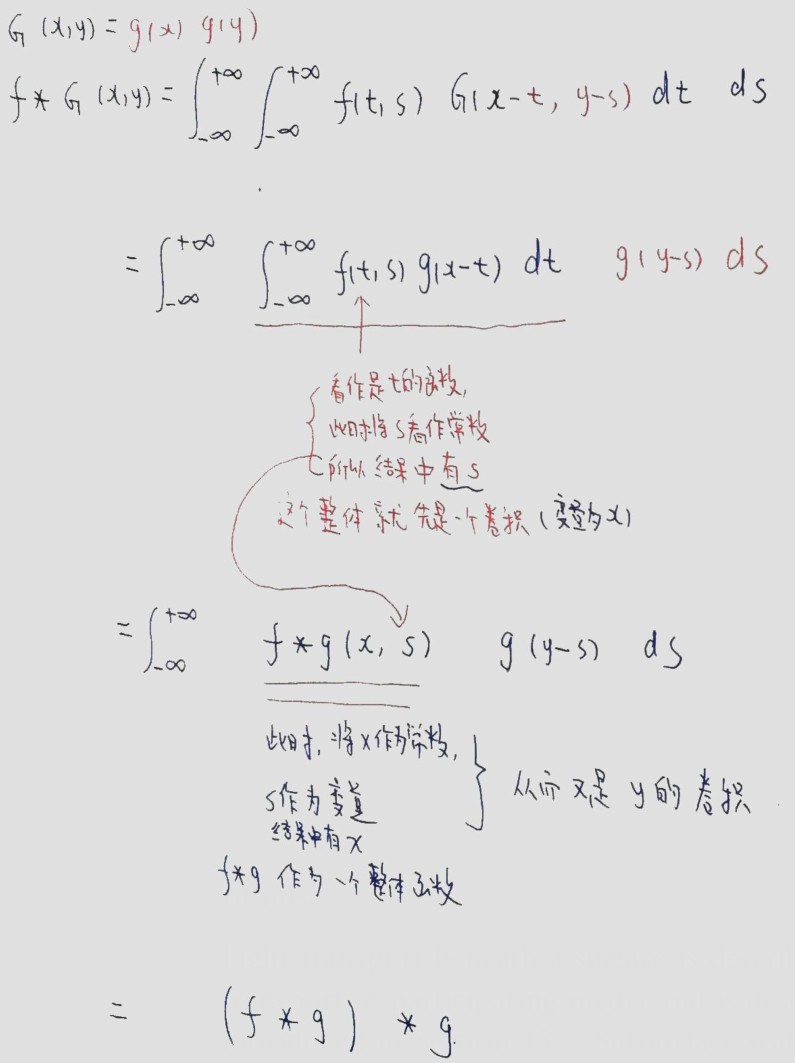 G(x,y) = g(x) g(y)
f * G (x,y) = ∫_{-∞}^{+∞} ∫_{-∞}^{+∞} f(t,s) G(x-t, y-s) dt ds
= ∫_{-∞}^{+∞} ∫_{-∞}^{+∞} f(t,s) g(x-t) dt g(y-s) ds
看作是t的函数,
此时将s看作常数
所以结果中有s
这个整体就先是一个卷积(变量为x)
= ∫_{-∞}^{+∞} f*g(x, s) g(y-s) ds
此时,将x作为常数,
s作为变量
结果中有x
从而又是 y的卷积
f*g 作为一个整体函数
= (f * g) * g